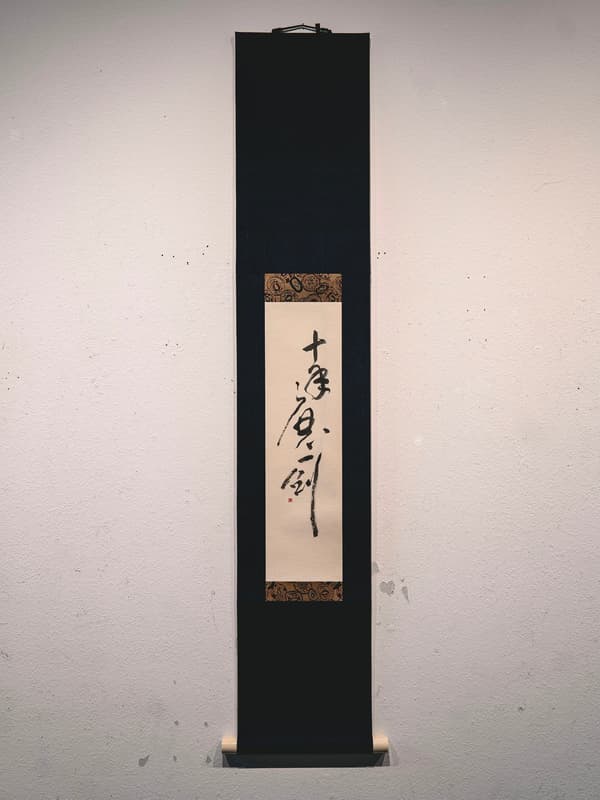 十年磨一剑